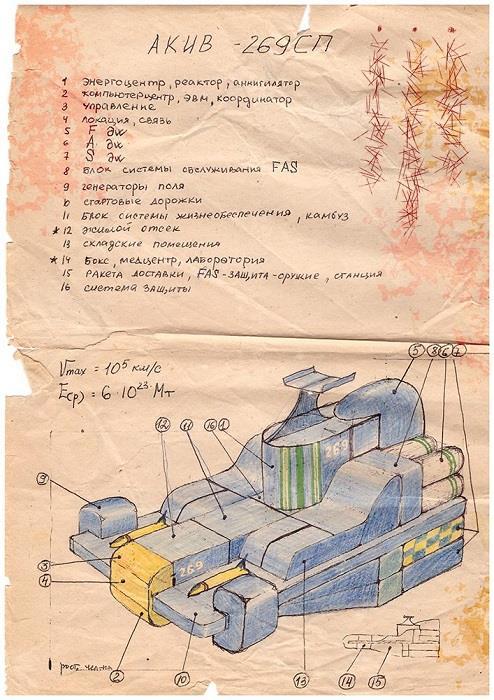 АКИВ -269СП
1 энергоцентр, реактор, аннигилятор
2 компьютерцентр, эвм, координатор
3 управление
4 локация, связь
5 F дж
6 A дж
7 S дж
8 блок системы обслуживания FAS
9 генераторы поля
10 стартовые дорожки
11 Блок системы жизнеобеспечения, камбуз
* 12 жилой отсек
13 складские помещения
* 14 Бокс, медцентр, лаборатория
15 Ракета доставки, FAS-защита-оружие, станция
16 система защиты
Vmax = 10⁵ км/с
Eср) = 6·10²³ Мт
5 8 6 7
12 11 16 1
269
9
3
4
269
2 10 13 14 15
рост чел-ка